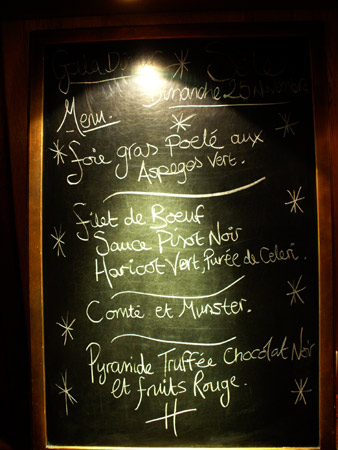 Gala Dinner
Dimanche 25 Novembre
Menu.
foie gras Poelé aux
Aspeges Vert.
filet de Boeuf
Sauce Pinot Noir
Haricot Vert, Purée de Celeri.
Comté et Munster.
Pyramide Truffée Chocolat Noir
et fruits Rouge.